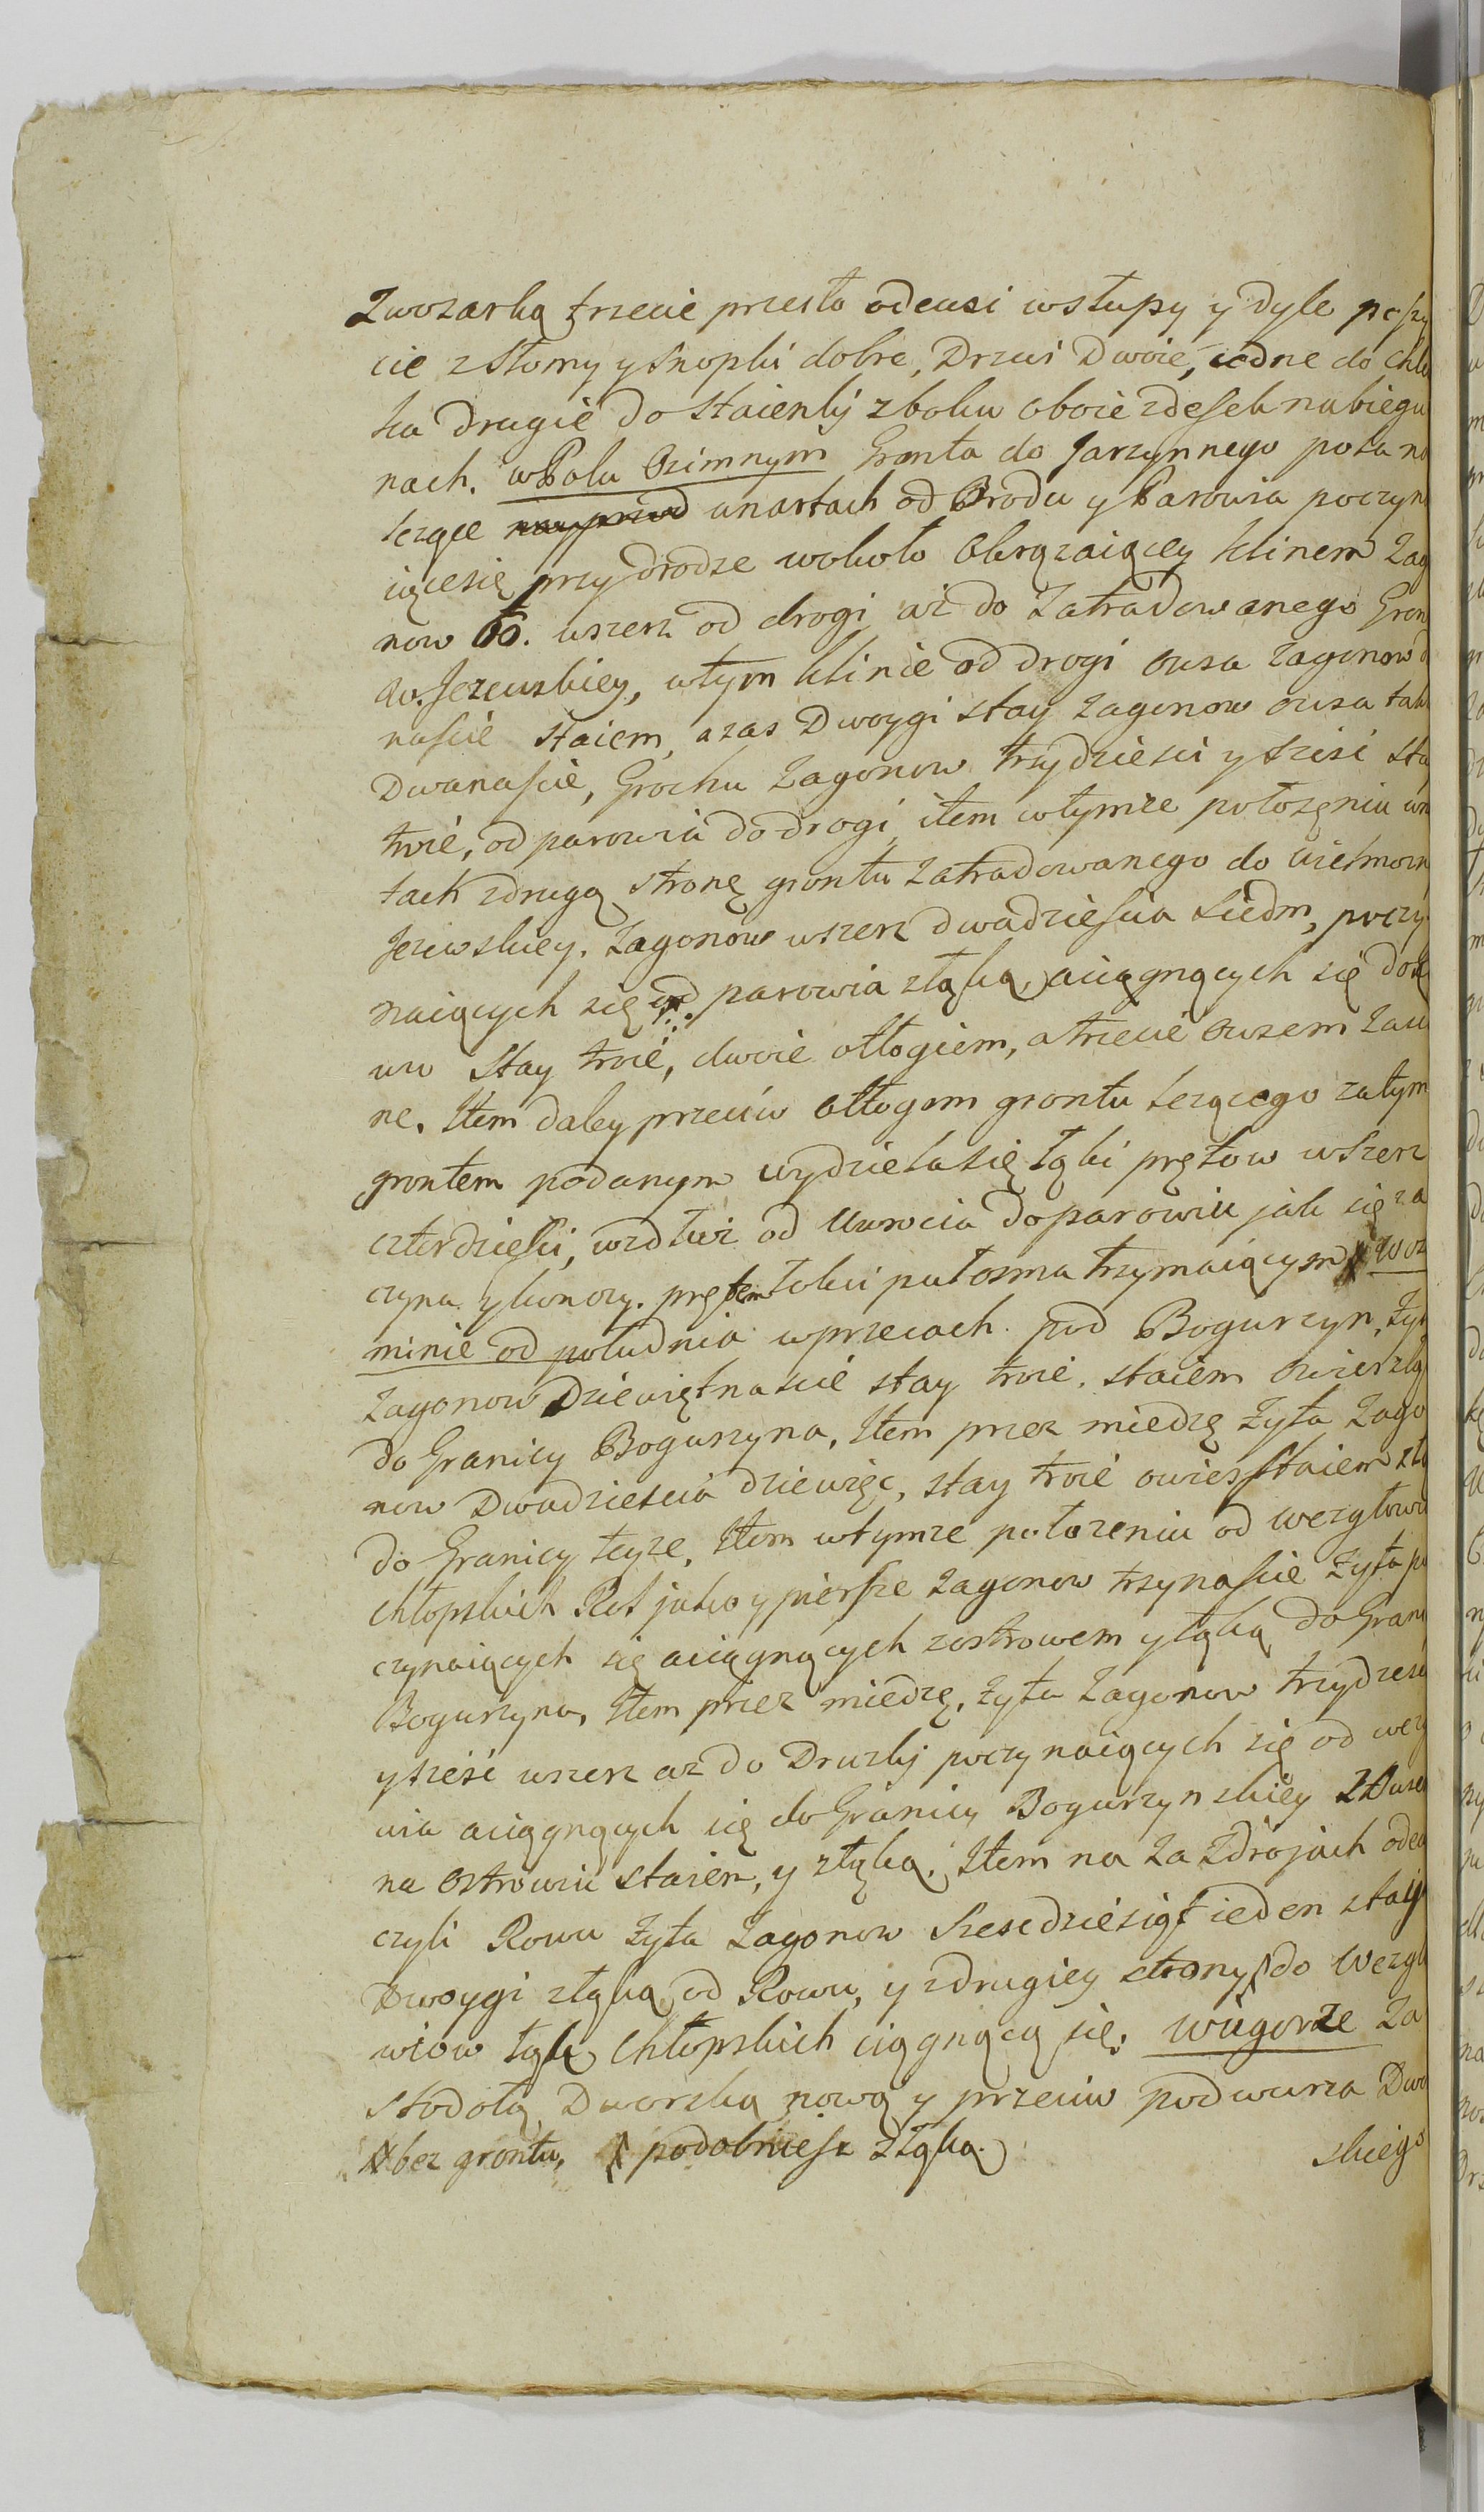 Zwozarką trzecie przesło odewsi wsłupy y dyle poszy
cie zsłomy y snopki dobre, Drzwi Dwoie, iedne do chle
ka drugie do staienki zboku oboie zdesek nabiegu
nach. wPolu Ozimnym Gronta do Jarzynnego pola na
lezące nayprzod unartach od Brodu y Parowia poczyna
iącesię przy drodze wokoło Okrązaiącey klinem Zag
now 60. wszerz od drogi aż do Zatradowanego Gron
W. Jezewskiey, wtym klinie od drogi owsa zagonow d
naście staiem, azas Dwoygi stay zagonow owsa takż
Dwanaście, Grochu Zagonow trzydziesci y sześć sta
troie, od parowia do drogi, item wtymże położęniu una
tach zdrugą stronę grontu Zatradowanego do wielmozn
Jezewskiey. Zagonow wszerz dwadzieścia siedm, poczy
naiących się od parowia złąką, aciągnących się do
wu stay troie, dwoie odłogiem, atrzecie owsem zasi
ne. Item daley przeciw odłogom grontu lezącego zatym
grontem podanym wydziela się łąki prętow wszerz
czterdzieści, wzdłuż od Uwrocia do parowiu jak się za
czyna y konczy. prętem łokci pułosma trzymaiącym wOz
minie od południa wprzecach pod Bogurzyn, Żyt
Zagonow Dziewiętnascie stay troie, staiem
do Granicy Bogurzyna, Item przez miedzę Żyta Zago
now Dwadziescia dziewięc, stay troie staiem złą
do Granicy teyże, Item wtymże położeniu od wezgłowia
chłopskich Rol jako y piersze zagonow trzynaście Żyta po
czynaiących się aciągnących zostrowem y łąką do Grani
Bogurzyna, Item przez miedzę, Żyta Zagonow trzydziesci
y sześć wszerz aż do Druzki poczynaiących się od wezg
wia aciągnących się do Granicy Bogurzynskiey
na Ostrowiu staien, y złąką. Item na Za Zdrojach
czyli Rowu Żyta Zagonow szescdziesiąt ieden stay
Dwoygi złąką od Rowu, y zdrugiey strony do Wezgło
wiow łąk chłopskich ciągnącą się. Wúgorze Za
stodołą Dworską nową y przeciw podwurza Dwo
bez grontu, podobniesz złąką. skiego